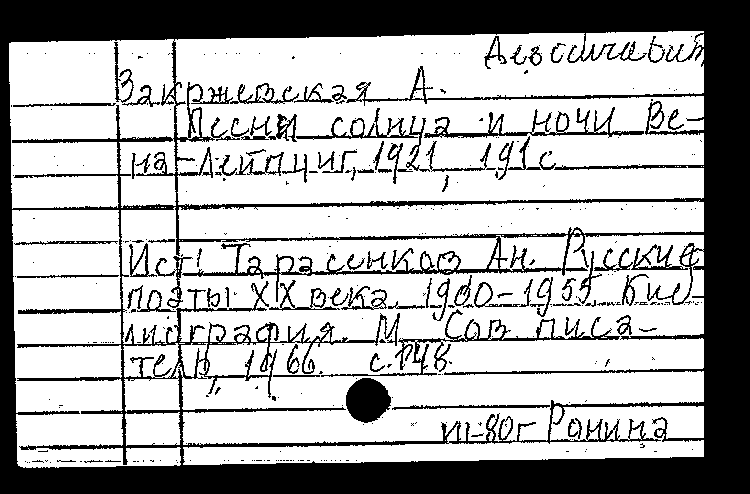 Закржевская А.
Песни солнца и ночи Ве-
на-Лейпциг, 1921, 191 с
Ист! Тарасенков Ан. Русские
поэты XX века. 1900-1955. Биб-
лиография. М. Сов писа-
тель, 1966. с.148.
III-80г Ранина